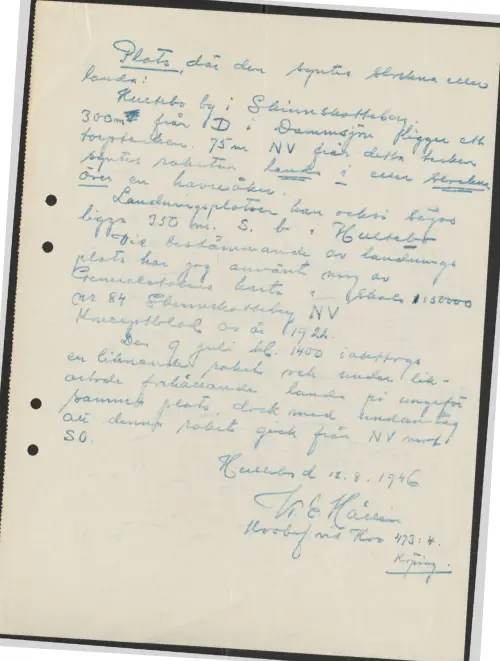 Plats, där den syntes slockna eller
landa:
Hultebo by i Skinnskatteberg.
300m från D i Dammsjön ligger ett
torptecken. 75m NV från detta tecken
syntes raketen landa i eller slockna
över en havreåker.
Landningsplatsen kan också sägas
ligga 350 m. S. b i Hultebo
Vid bestämmande av landnings
plats har jag använt mig av
Generalstabens karta i skala 1:50000
nr 84 Skinnskatteberg NV
Konceptblad av år 1922.
Den 9 juli kl. 1400 iakttogs
en liknande raket och under lik-
artade förhållande landa på ungefär
samma plats, dock med undantag
att denna raket gick från NV mot
SO.
Hultebo d 12.8.1946
W. E
vid Kvo 473:4.
Köping.